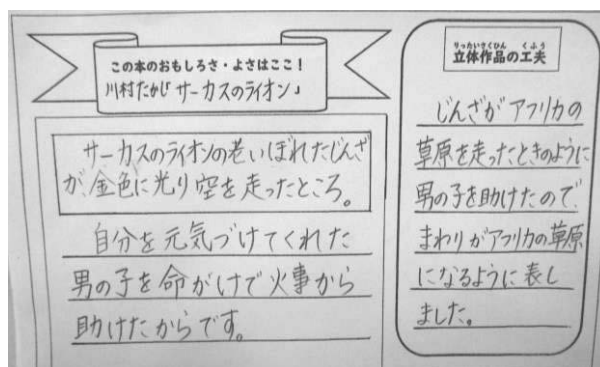 この本のおもしろさ・よさはここ!
川村たかし サーカスのライオン」
サーカスのライオンの老いぼれたじんざ
が、金色に光り空を走ったところ。
自分を元気づけてくれた
男の子を命がけで火事から
助けたからです。
りったいさくひん くふう
立体作品の工夫
じんざがアフリカの
草原を走ったときのように
男の子を助けたので、
まわりがアフリカの草原
になるように表し
ました。